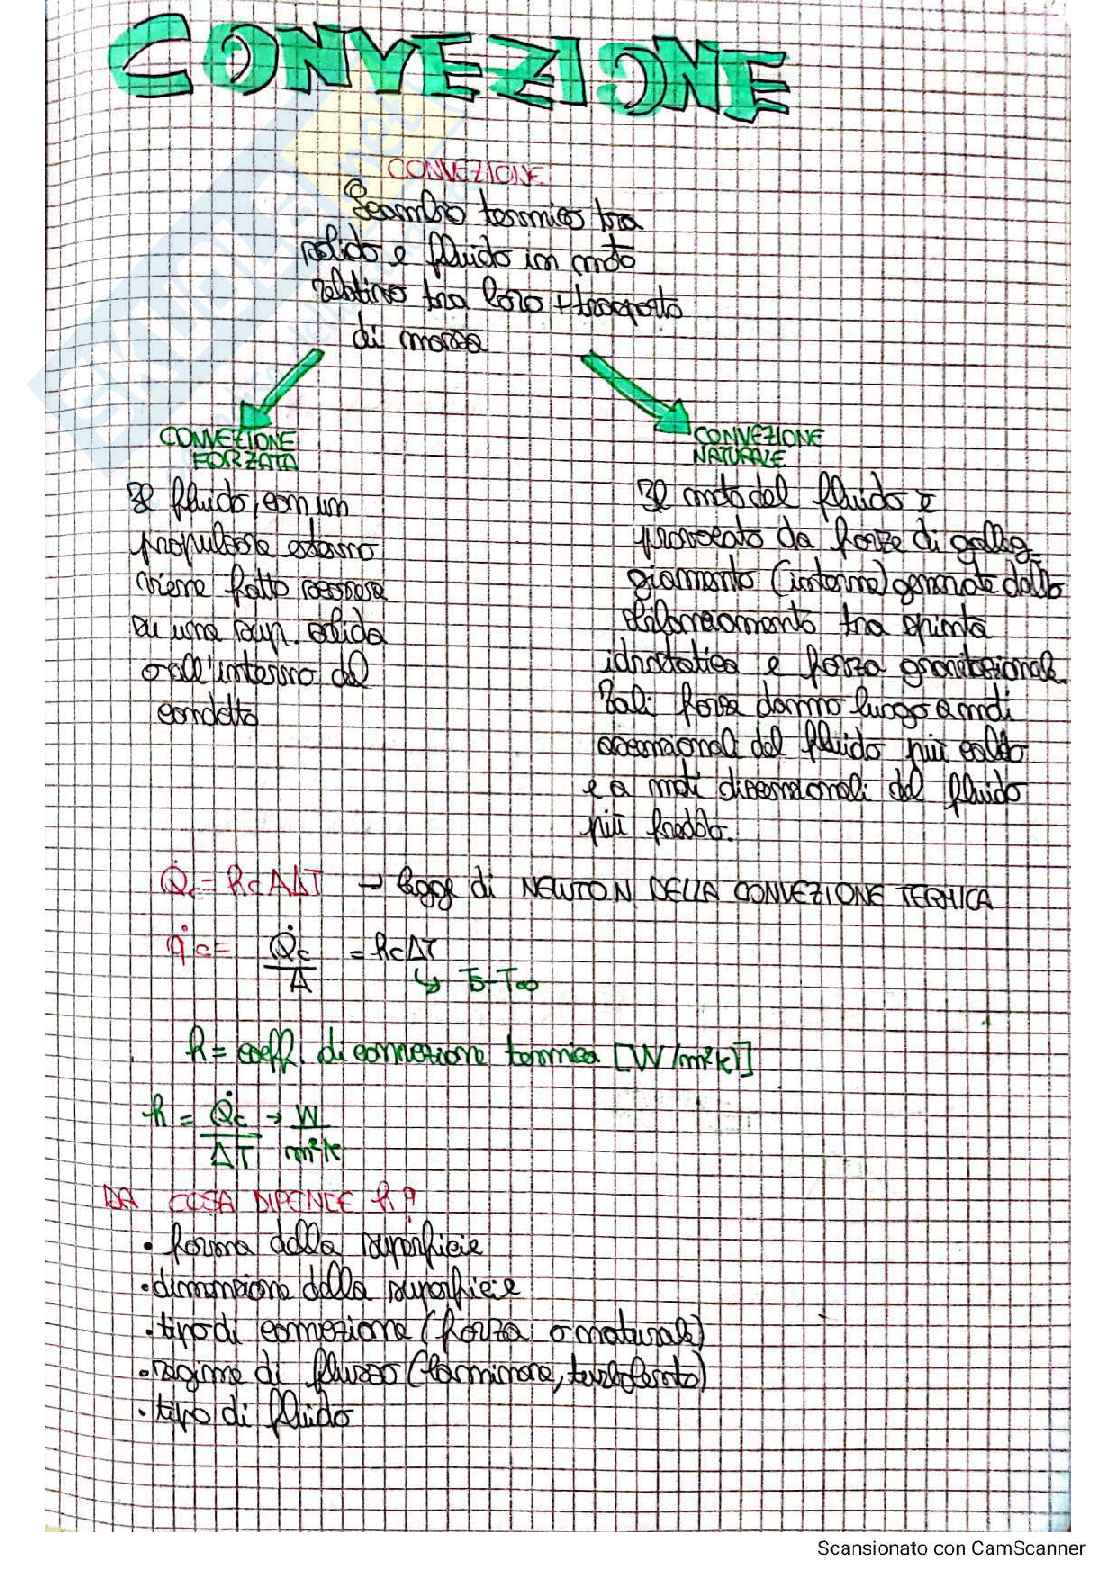 CONVEZIONE
CONVEZIONE
Scambio termico tra
solido e fluido in moto
relativo tra loro + trasporto
di massa
CONVEZIONE
FORZATA
Il fluido, con un
propulsore esterno
viene fatto scorrere
su una sup. solida
o all'interno del
condotto
CONVEZIONE
NATURALE
Il moto del fluido è
provocato da forze di galleg-
giamento (interne) generate dallo
sbilanciamento tra spinta
idrostatica e forza gravitazionale.
Tali forze danno luogo a moti
ascensionali del fluido più caldo
e a moti discensionali del fluido
più freddo.
Q̇c = hcAΔT → legge di NEWTON DELLA CONVEZIONE TERMICA
q̇c = Q̇c/A = hcΔT
↳ Ts-T∞
h = coeff. di convezione termica [W/m²K]
h = Q̇c/ΔT → W/m²k
DA COSA DIPENDE h?
• forma della superficie
• dimensione della superficie
• tipo di convezione (forza o naturale)
• regime di flusso (laminare, turbolento)
• tipo di fluido
Scansionato con CamScanner